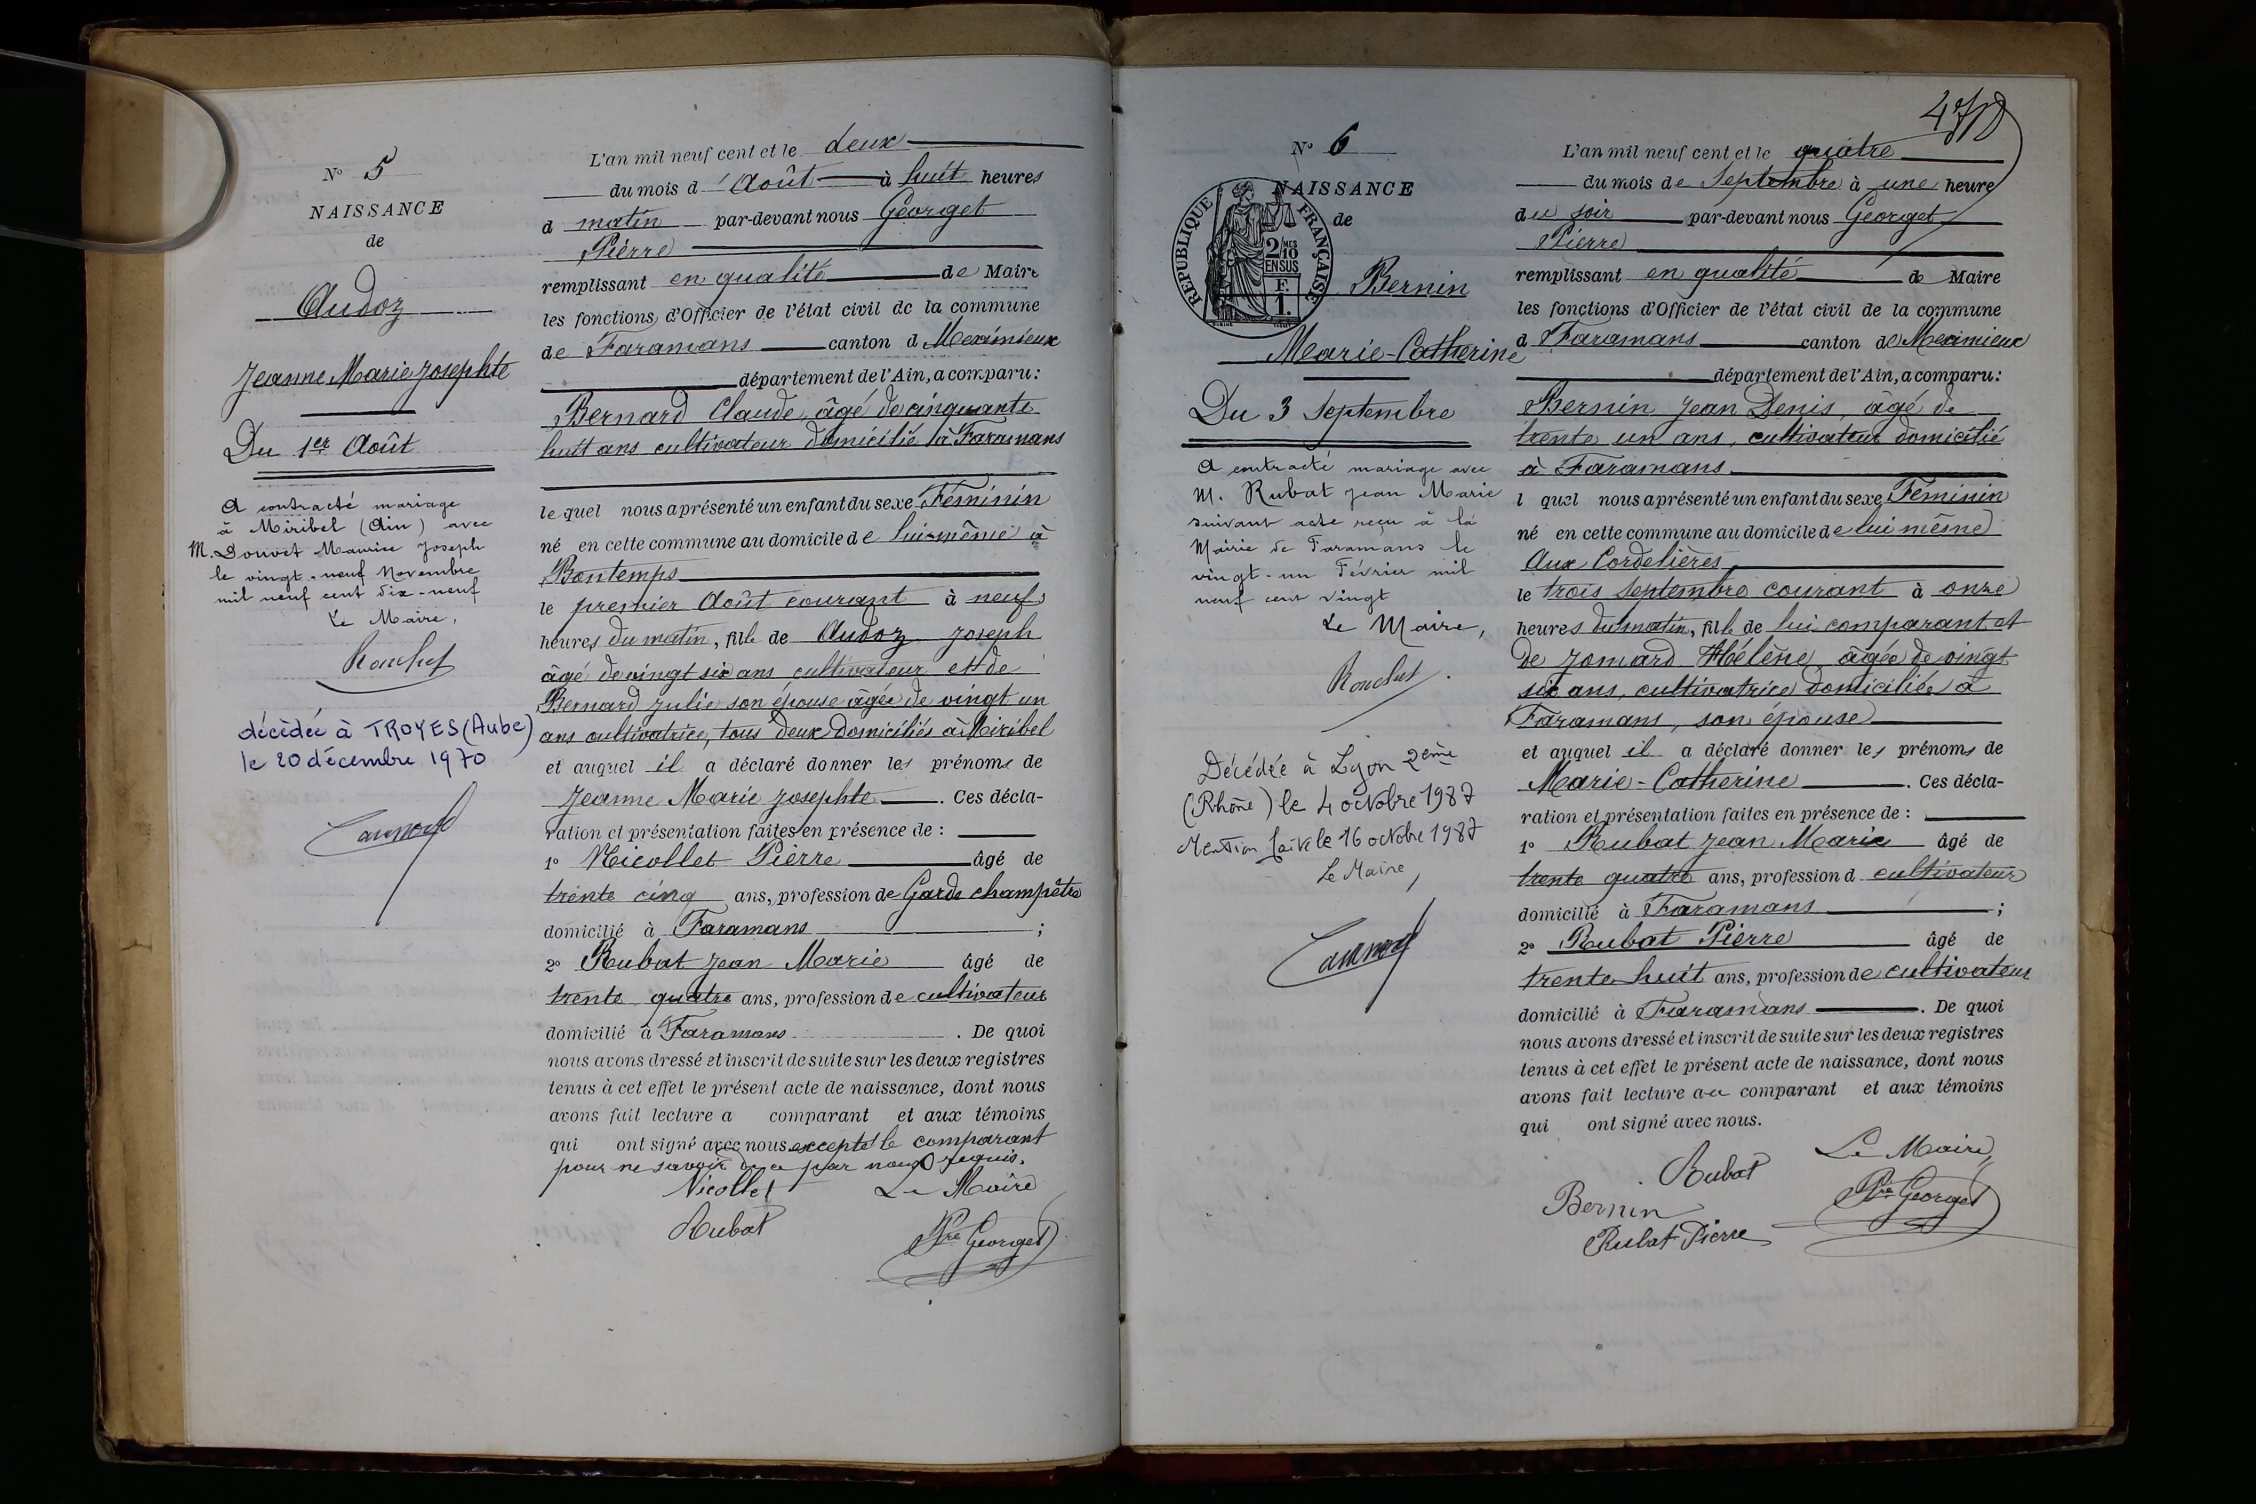 N° 5
NAISSANCE
de
Audoz
Jeanne Marie Josephte
Du 1er Août
A contracté mariage
à Miribel (Ain) avec
M. Douvet Maurice Joseph
le vingt-neuf Novembre
mil neuf cent dix-neuf
Le Maire,
décédée à TROYES (Aube)
le 20 décembre 1970
L'an mil neuf cent et le deux
du mois d'Août à huit heures
d matin par-devant nous Georget
Pierre
remplissant en qualité de Maire
les fonctions d'Officier de l'état civil de la commune
de Faramans canton d Meximieux
département de l'Ain, a comparu:
Bernard Claude, âgé de cinquante
huit ans cultivateur domicilié à Faramans
le quel nous a présenté un enfant du sexe Féminin
né en cette commune au domicile de lui-même à
Bontemps
le premier Août courant à neuf
heures du matin, fille de Audoz Joseph
âgé de vingt six ans cultivateur et de
Bernard Julie son épouse âgée de vingt un
ans cultivatrice, tous deux domiciliés à Miribel
et auquel il a déclaré donner les prénoms de
Jeanne Marie Josephte. Ces décla-
ration et présentation faites en présence de :
1° Nicollet Pierre âgé de
trente cinq ans, profession de Garde champêtre
domicilié à Faramans ;
2° Rubat Jean Marie âgé de
trente quatre ans, profession de cultivateur
domicilié à Faramans. De quoi
nous avons dressé et inscrit de suite sur les deux registres
tenus à cet effet le présent acte de naissance, dont nous
avons fait lecture a comparant et aux témoins
qui ont signé avec nous excepté le comparant
pour ne savoir de ce par nous requis.
Nicollet Le Maire
Rubat Pre Georget
N° 6
NAISSANCE
de
REPUBLIQUE FRANÇAISE
2/10 MES
EN SUS
F.
1.
Bernin
Marie-Catherine
Du 3 Septembre
A contracté mariage avec
M. Rubat Jean Marie
suivant acte reçu à la
Mairie de Faramans le
vingt-un Février mil
neuf cent vingt
Le Maire,
Décédée à Lyon 2ème
(Rhône) le 4 octobre 1987
Mention faite le 16 octobre 1987
Le Maire,
L'an mil neuf cent et le quatre
du mois de Septembre à une heure
du soir par-devant nous Georget
Pierre
remplissant en qualité de Maire
les fonctions d'Officier de l'état civil de la commune
d Faramans canton de Meximieux
département de l'Ain, a comparu:
Bernin Jean Denis, âgé de
trente un ans, cultivateur domicilié
à Faramans
l quel nous a présenté un enfant du sexe Féminin
né en cette commune au domicile de lui même
Aux Cordelières
le trois Septembre courant à onze
heures du matin, fille de lui comparant et
de Jomard Hélène âgée de vingt
six ans, cultivatrice domiciliée à
Faramans, son épouse
et auquel il a déclaré donner les prénoms de
Marie-Catherine. Ces décla-
ration et présentation faites en présence de :
1° Rubat Jean Marie âgé de
trente quatre ans, profession d cultivateur
domicilié à Faramans ;
2° Rubat Pierre âgé de
trente huit ans, profession de cultivateur
domicilié à Faramans. De quoi
nous avons dressé et inscrit de suite sur les deux registres
tenus à cet effet le présent acte de naissance, dont nous
avons fait lecture au comparant et aux témoins
qui ont signé avec nous.
Rubat Le Maire
Bernin Pre Georget
Rubat Pierre